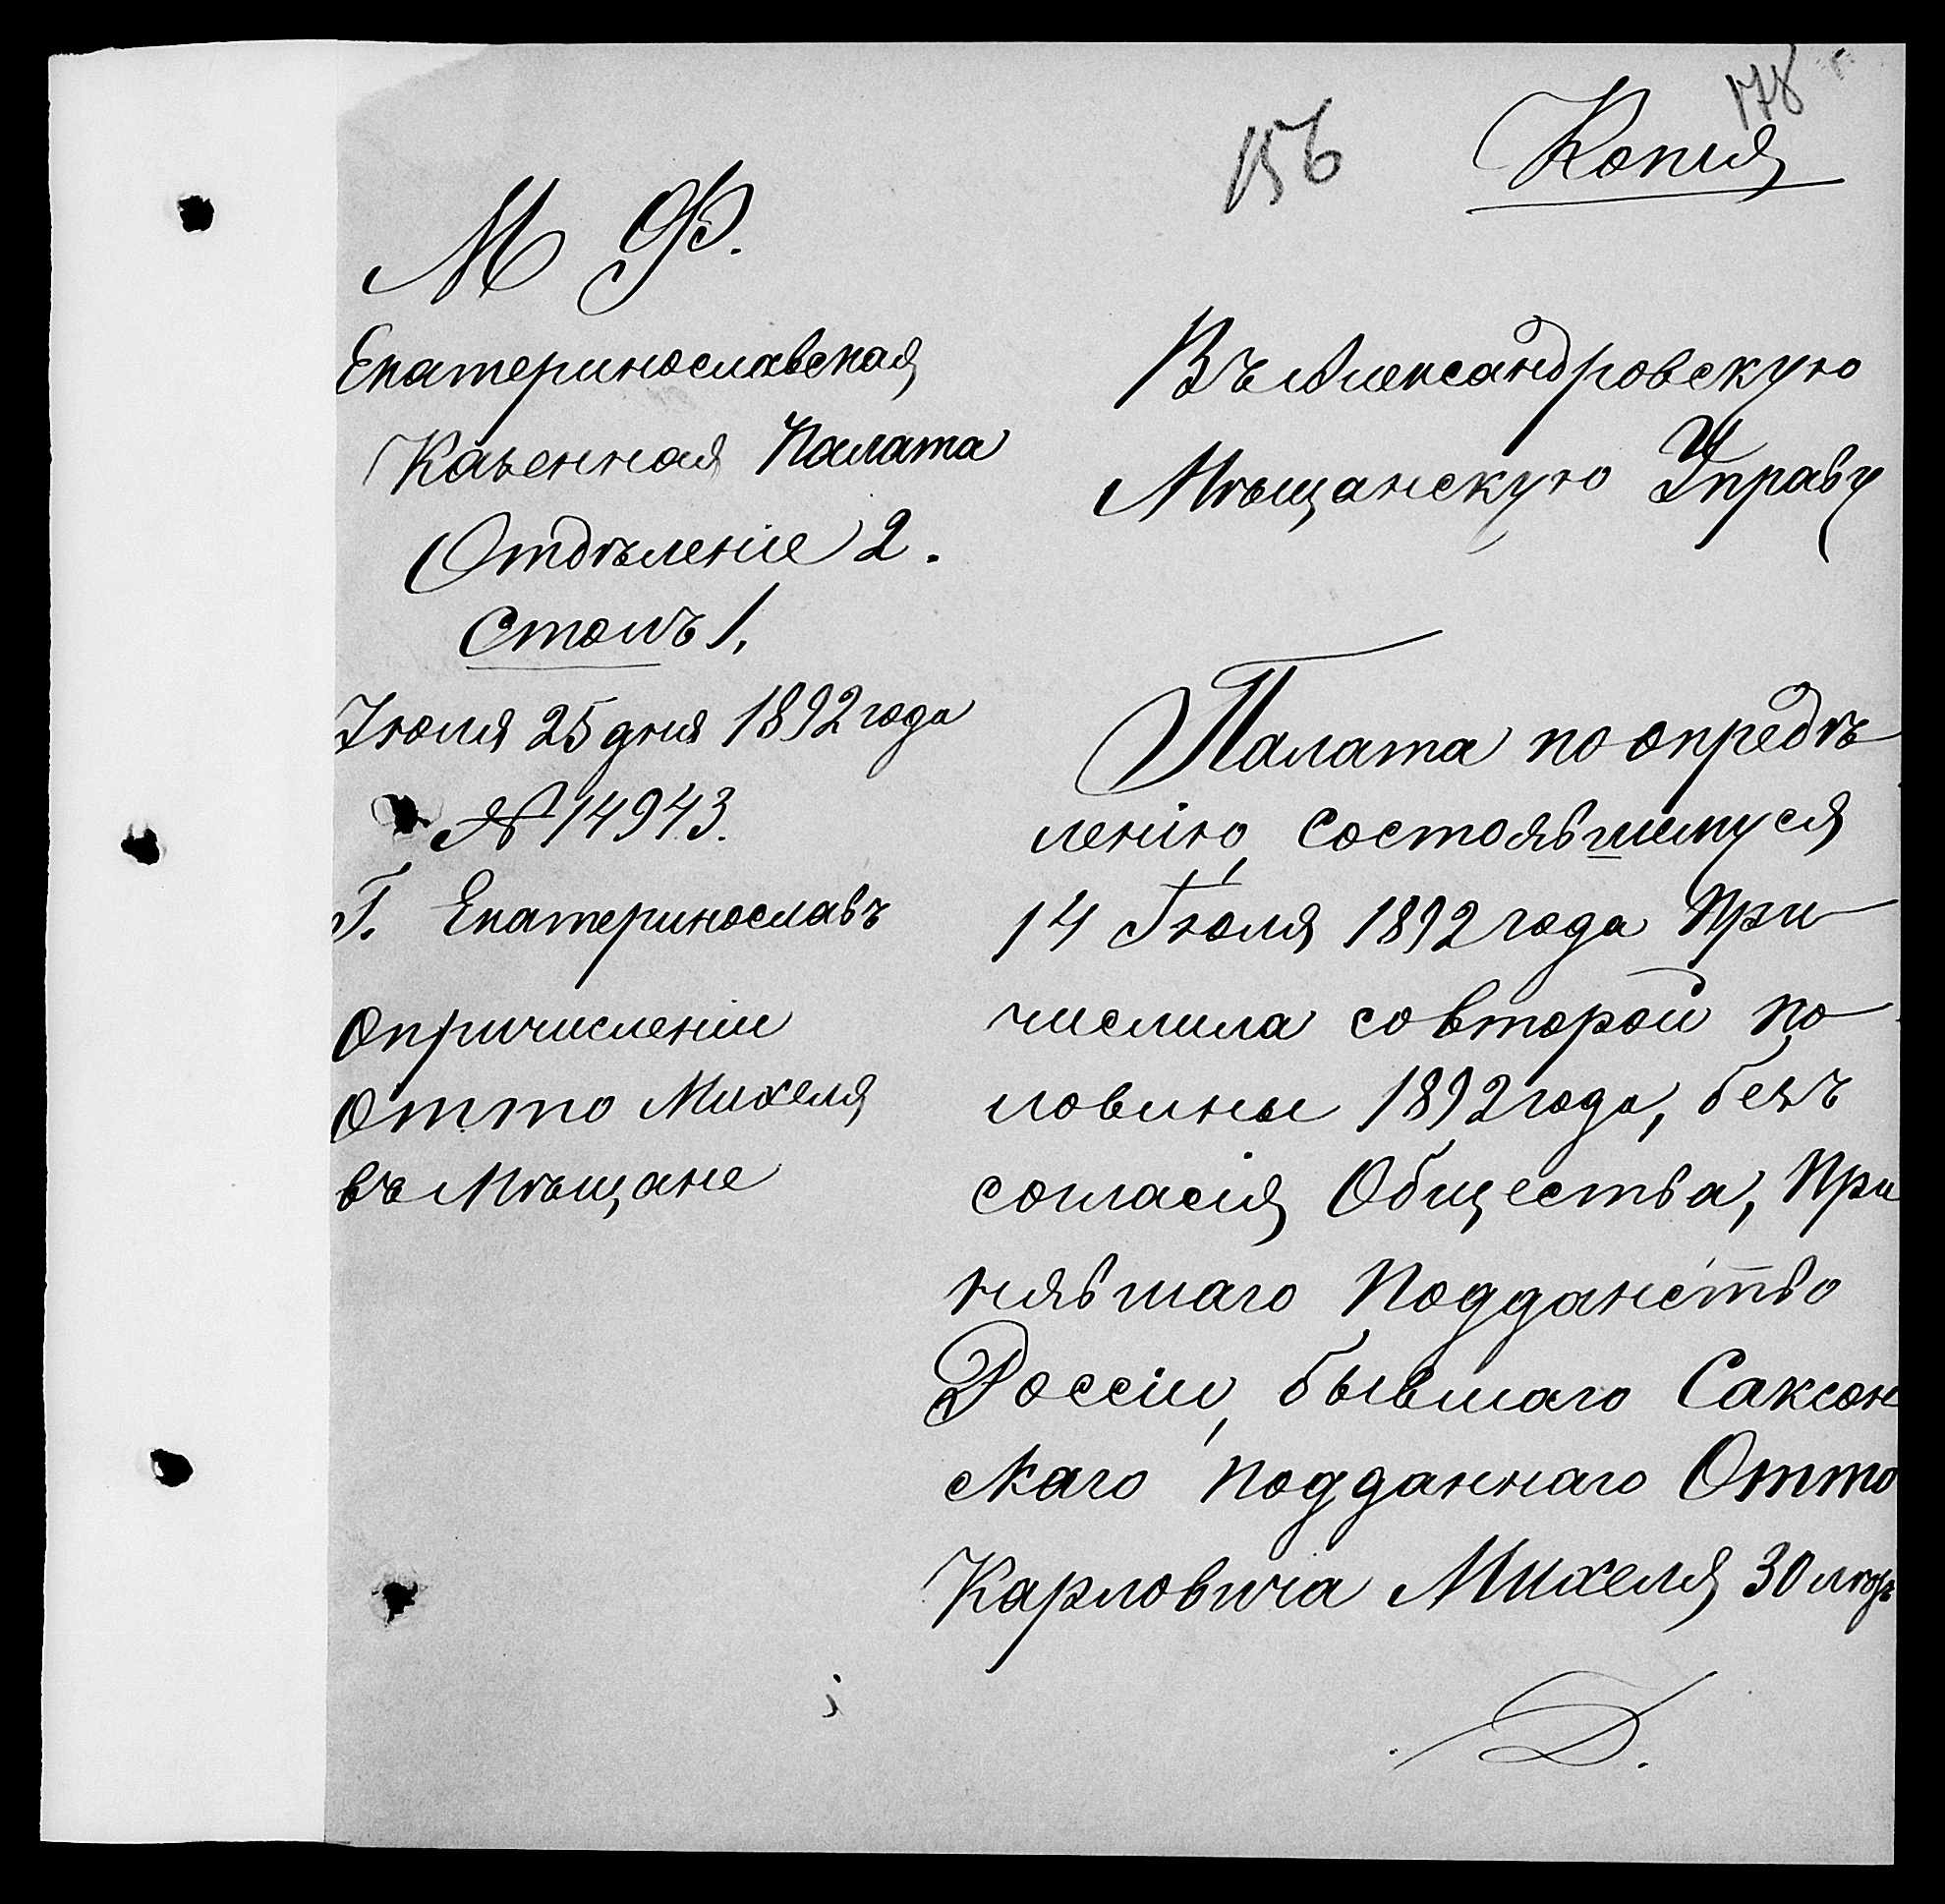 178
156
Копія
М Ф.
Екатеринославская
Казенная Палата
Отдѣленіе 2.
Столъ 1.
Іюля 25 дня 1892 года
№ 14943.
Г. Екатеринославъ
О причисленіи
Отто Михеля
въ Мѣщане
Въ Александровскую
Мѣщанскую Управу
Палата по опредѣ
ленію, состоявшемуся
14 Іюля 1892 года При
числила со второй По
ловины 1892 года, безъ
согласія Общества, При
нявшаго Подданство
Россіи, бывшаго Саксон
скаго подданнаго Отто
Карловича Михеля 30 лѣтъ
Д.